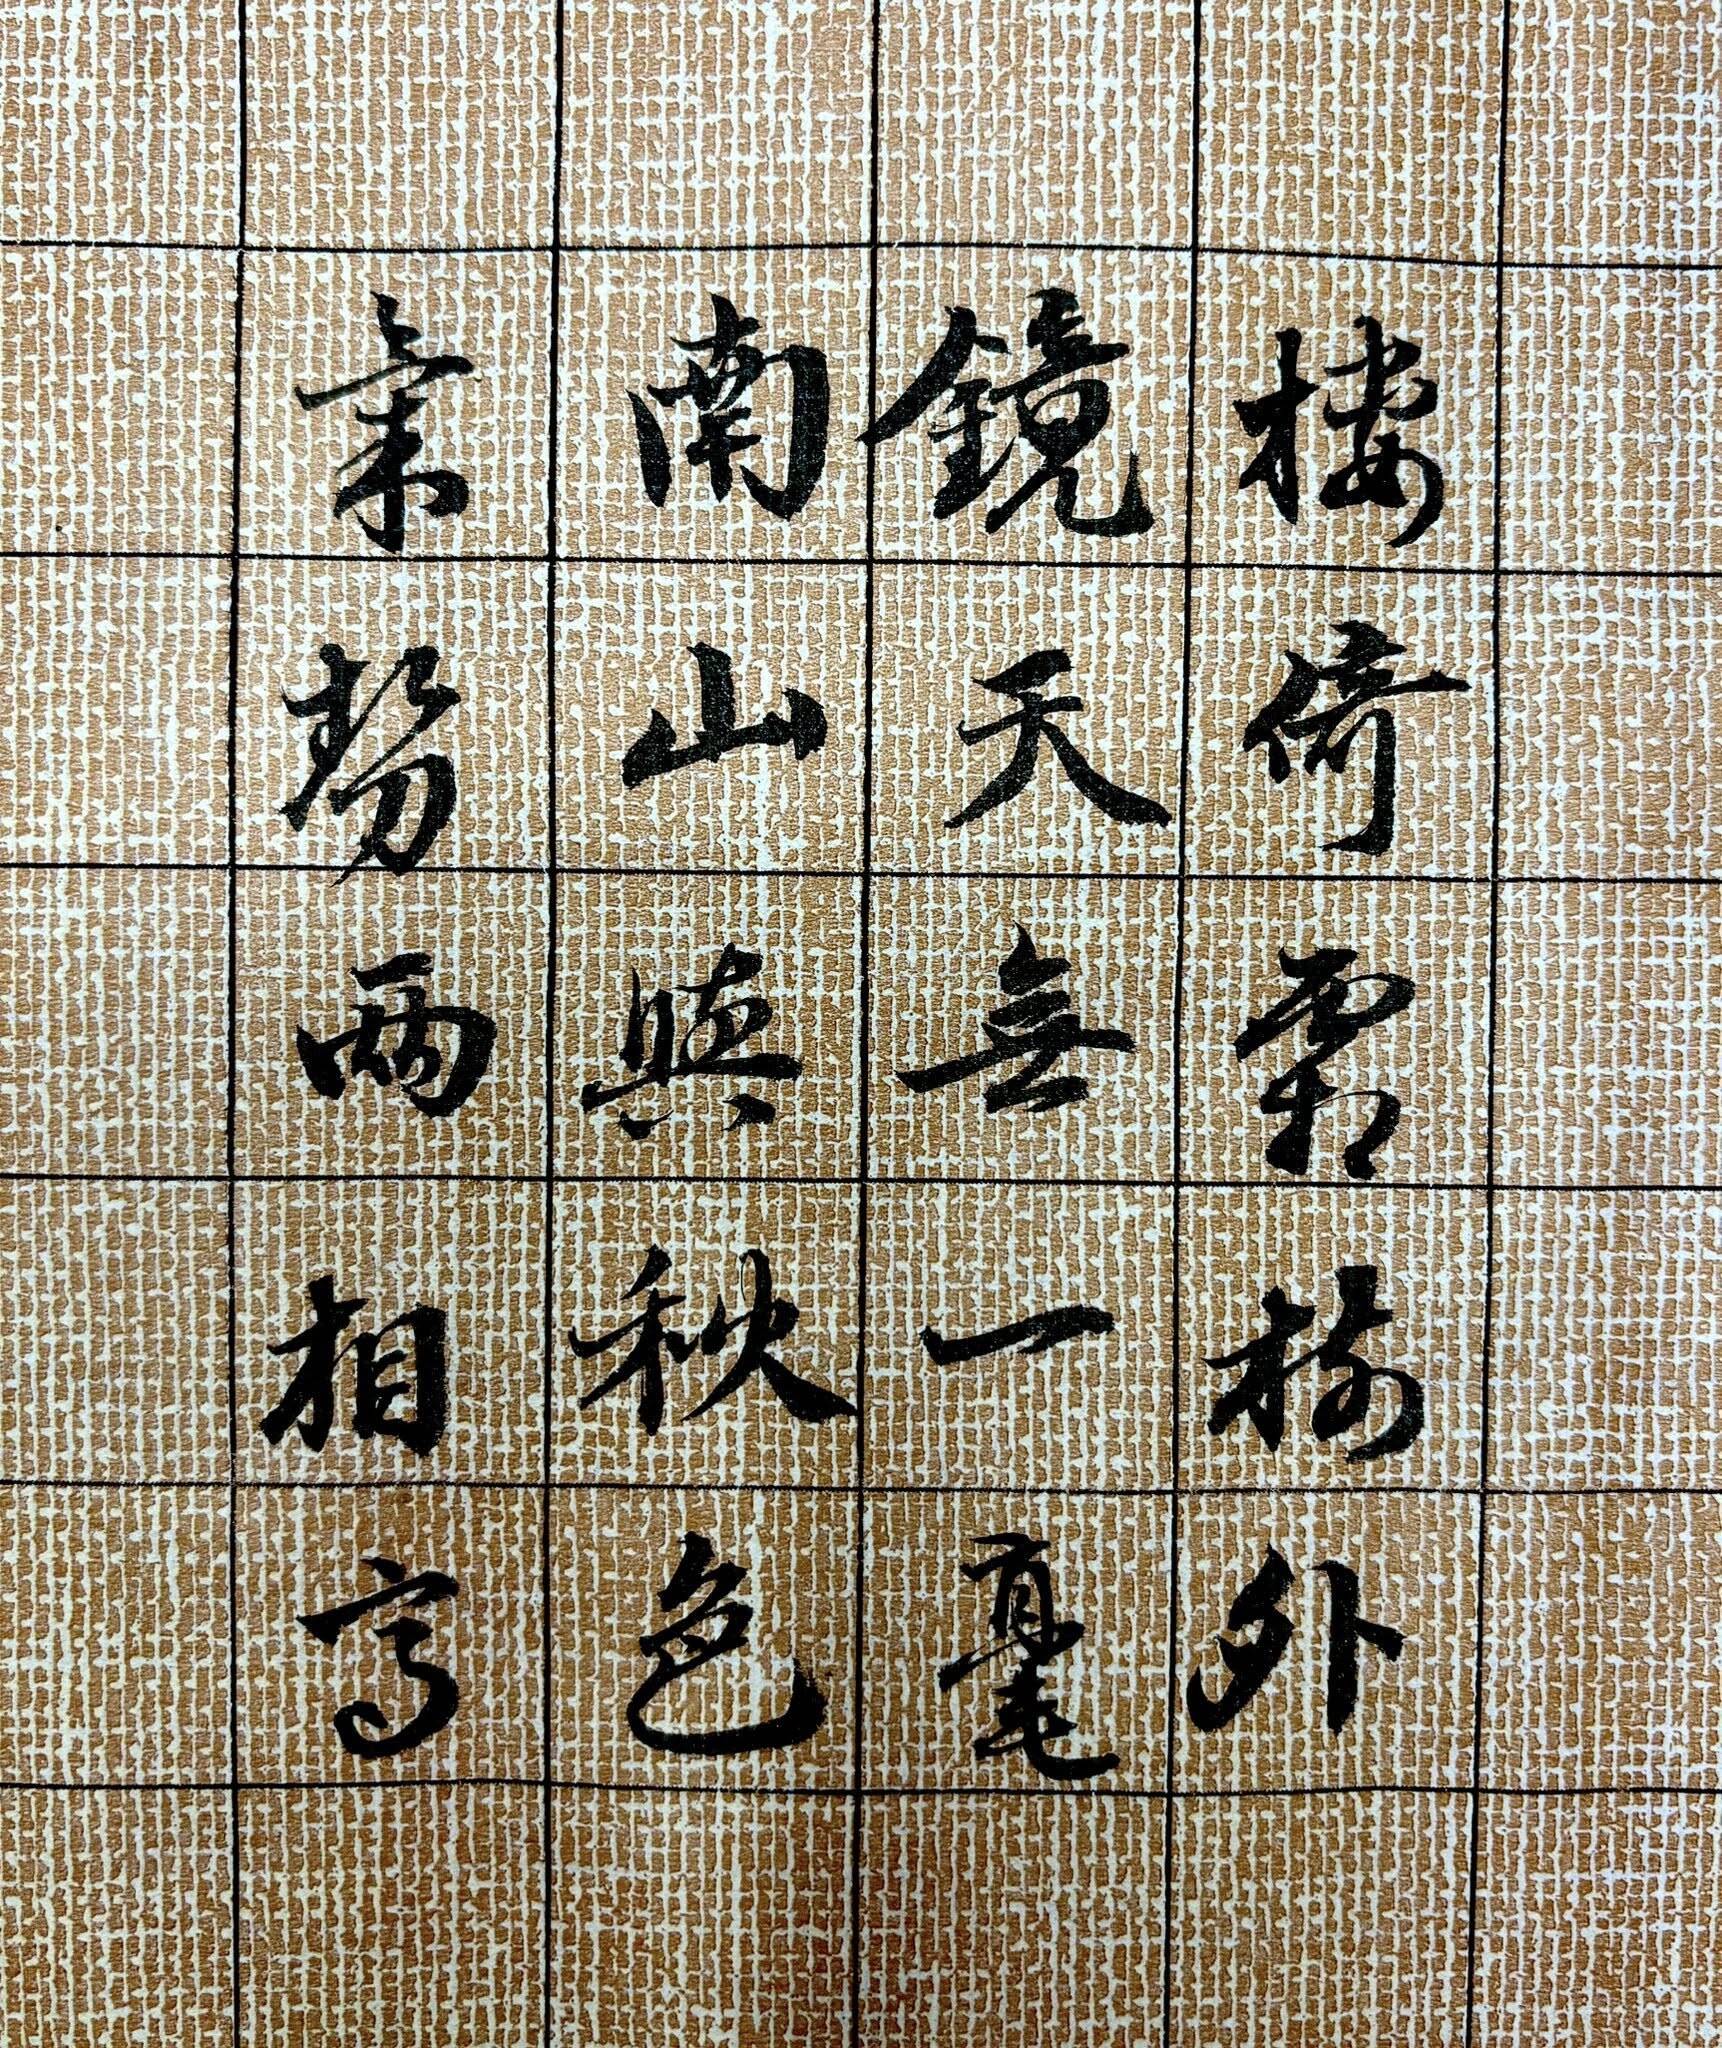 樓倚霜樹外
鏡天無一毫
南山與秋色
氣勢兩相高